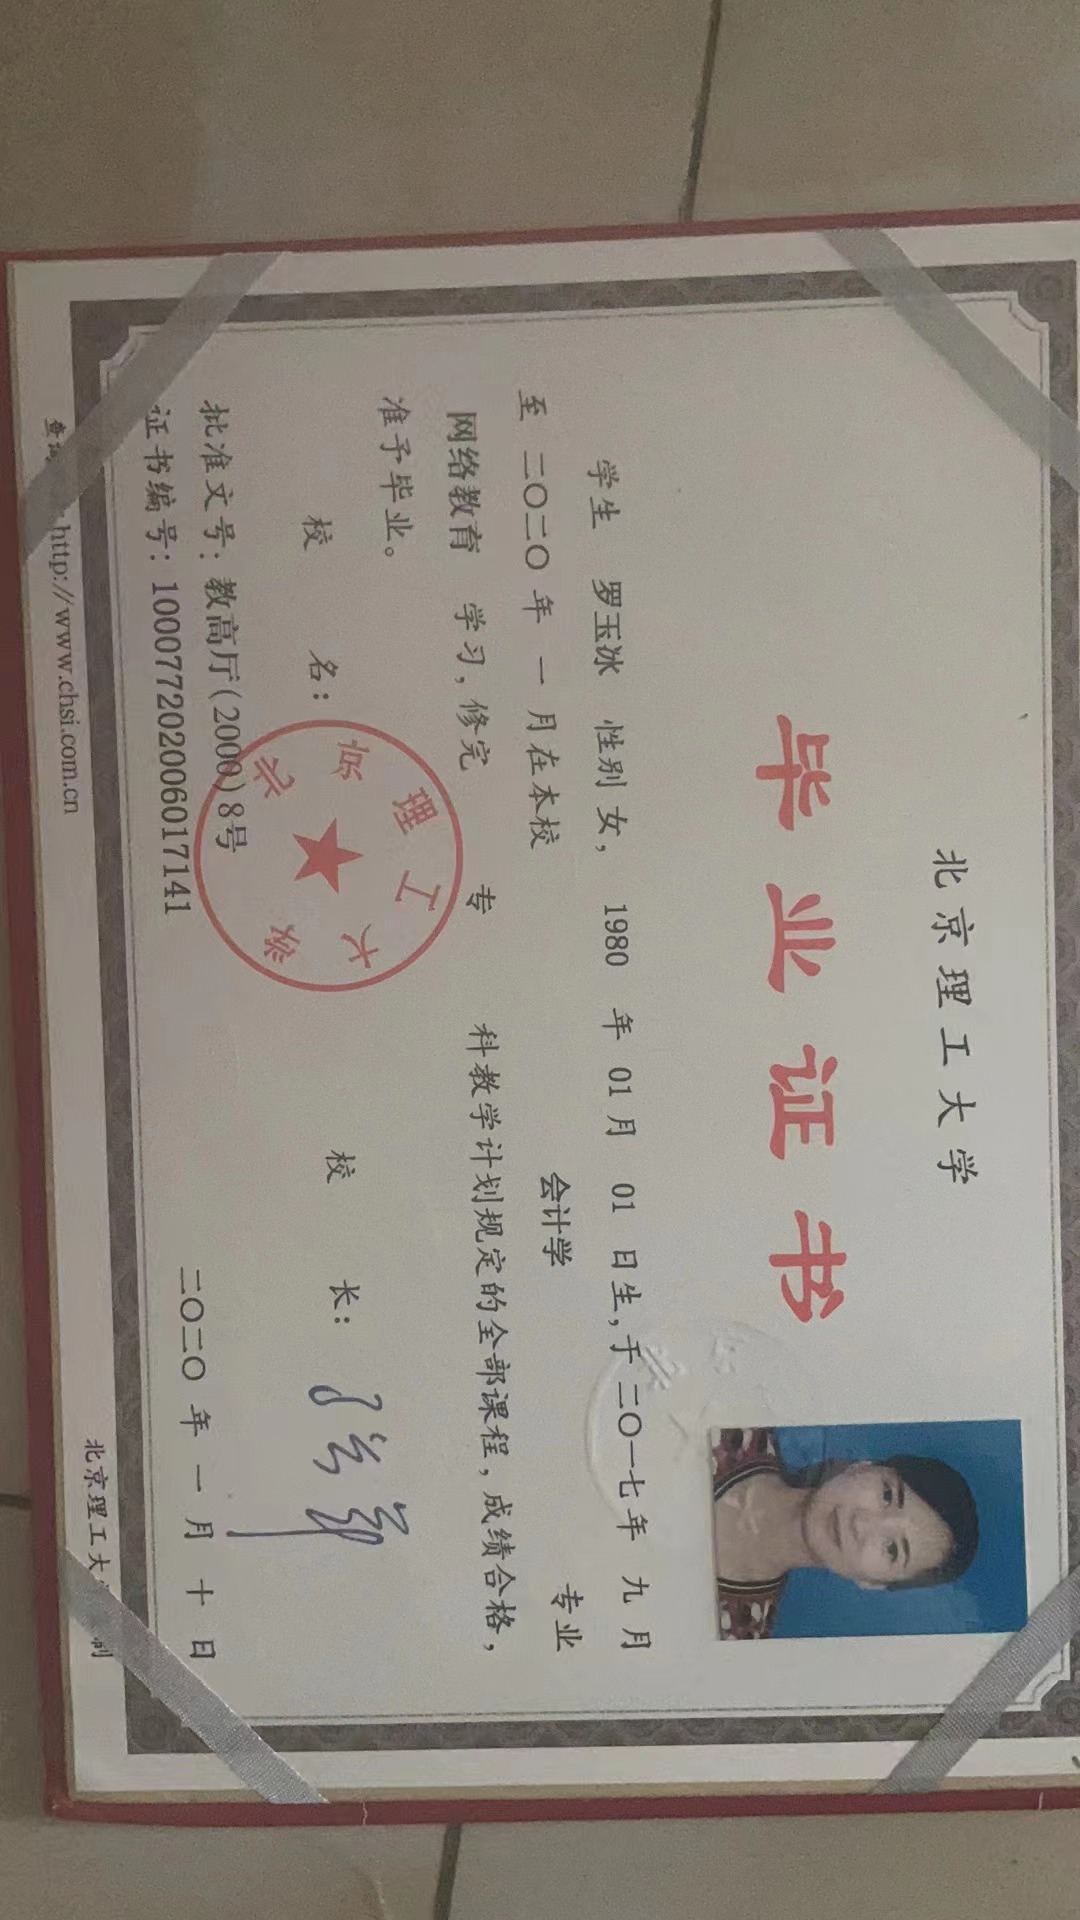 北京理工大学
毕业证书
学生 罗玉冰 性别 女，1980 年 01 月 01 日生，于 二〇一七 年 九 月
至 二〇二〇 年 一 月在本校 会计学 专业
网络教育 学习，修完 专 科教学计划规定的全部课程，成绩合格，
准予毕业。
校 名： 校 长：
北京理工大学
批准文号：教高厅(2000)8号
证书编号：100077202006017141 二〇二〇 年 一 月 十 日
查询 http://www.chsi.com.cn 北京理工大 制